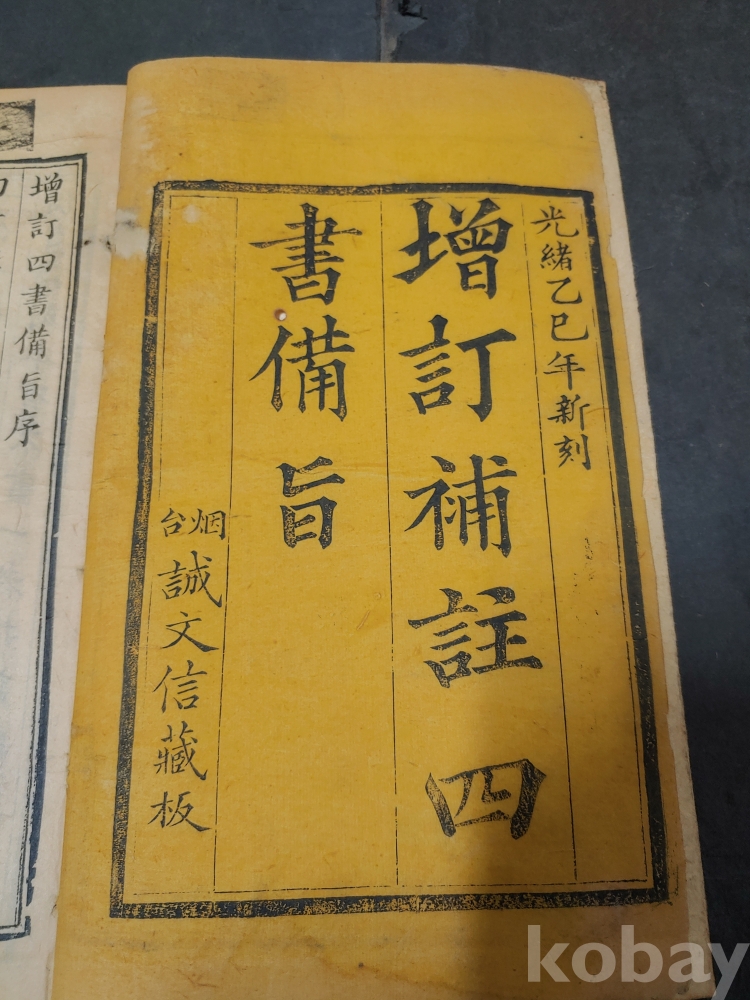 光緒乙巳年新刻
增訂補註四
書備旨
烟台
誠文信藏板
增訂四書備旨序
kobay